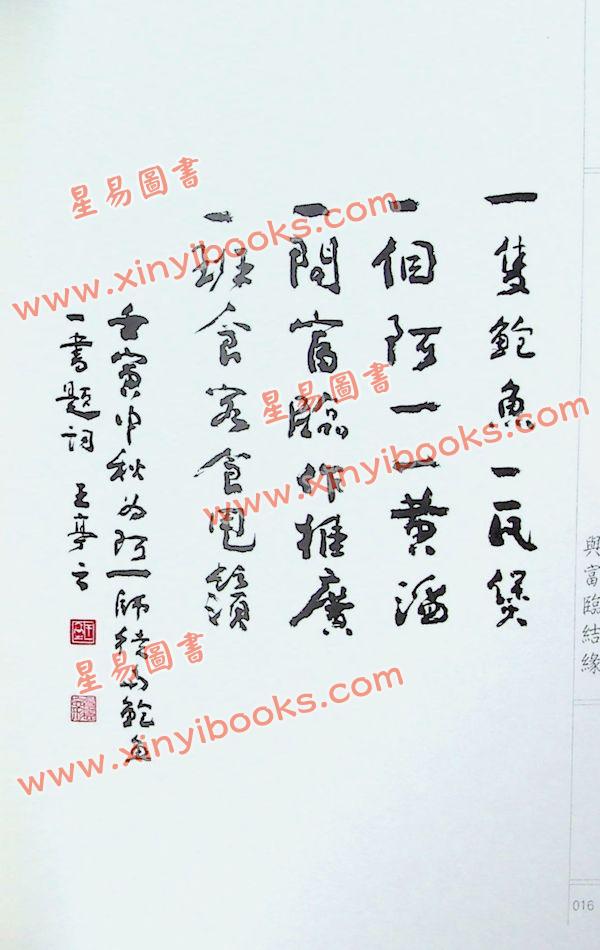 一隻鮑魚一瓦煲
一個阿一一黃
一間富臨作推廣
一班食客食甩
壬寅中秋為阿一師傅與鮑魚
一書題詞 王亭之
與富臨結緣
016
星易圖書
www.xinyibooks.com
星易圖書
www.xinyibooks.com
星易圖書
www.xinyibooks.com